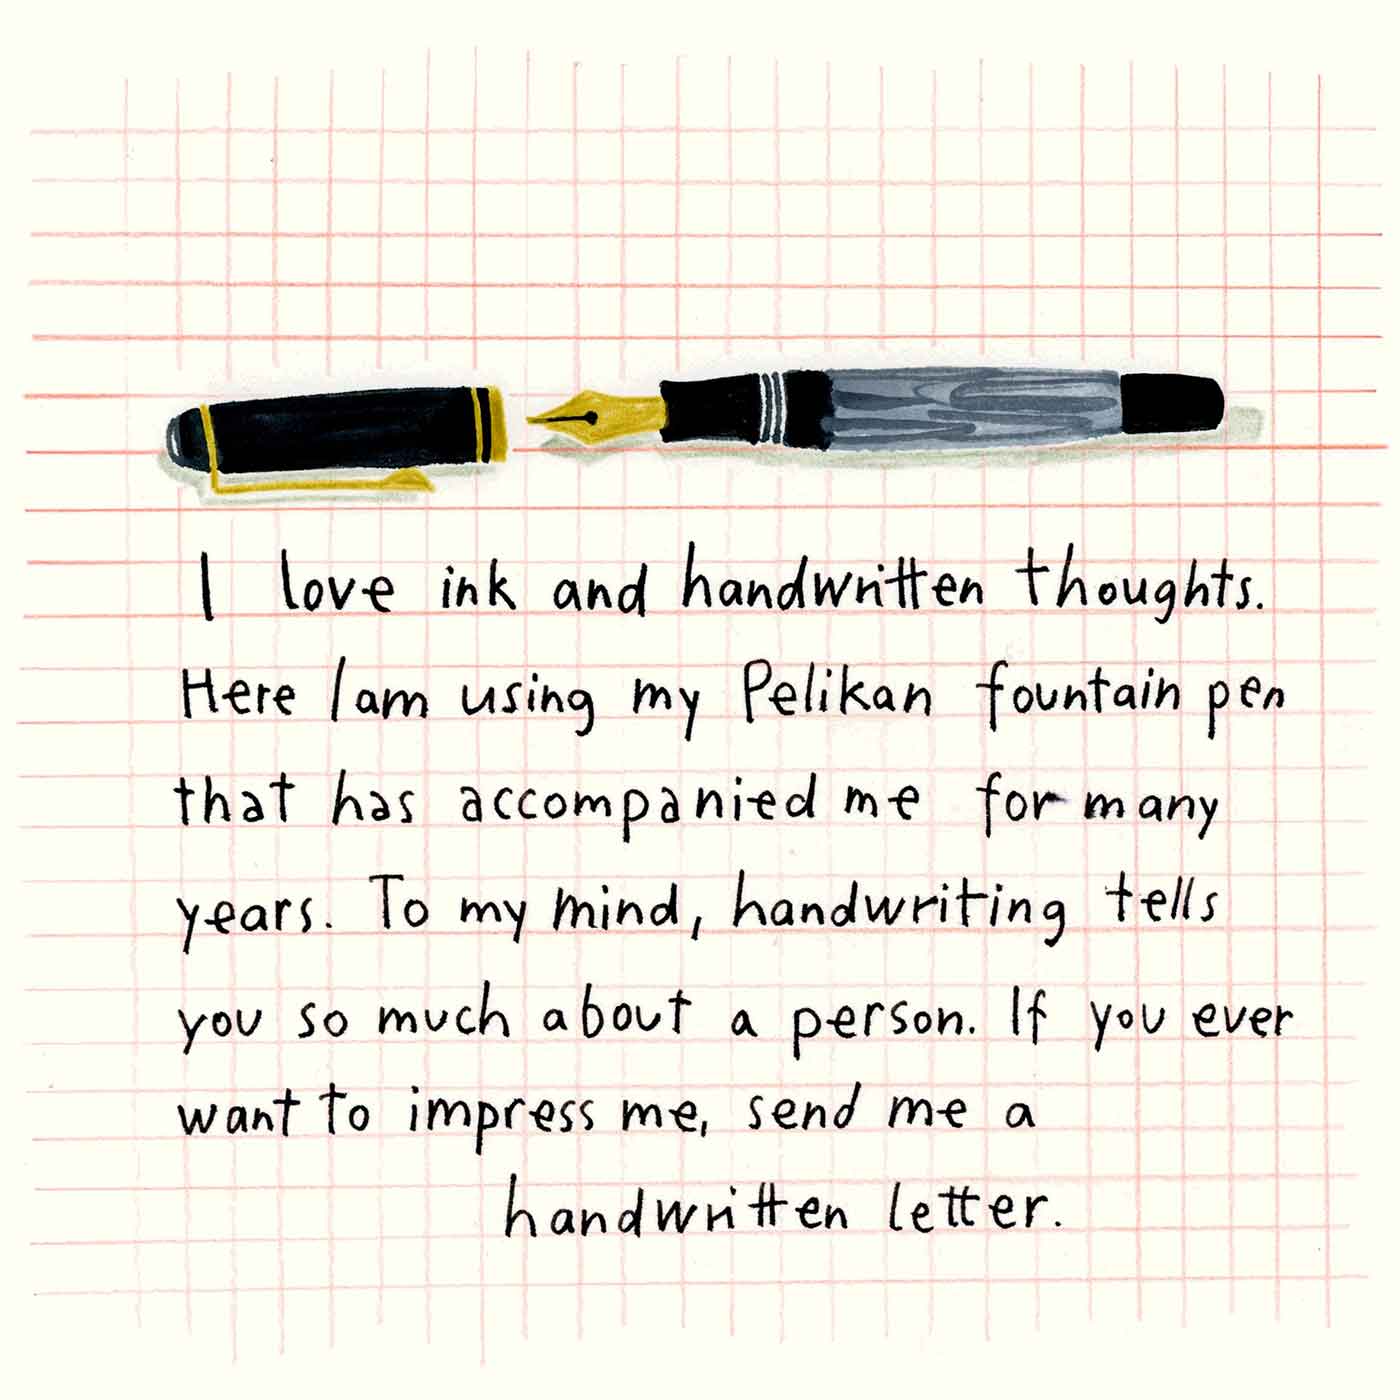 I love ink and handwritten thoughts.
Here I am using my Pelikan fountain pen
that has accompanied me for many
years. To my mind, handwriting tells
you so much about a person. If you ever
want to impress me, send me a
handwritten letter.